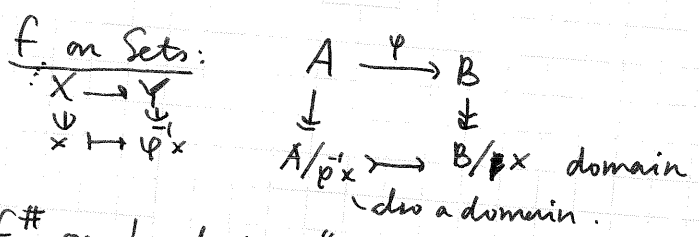 f on Sets:
X → Y
x ↦ φ⁻¹x
A φ→ B
A/φ⁻¹x ↣ B/x domain
also a domain.
f#